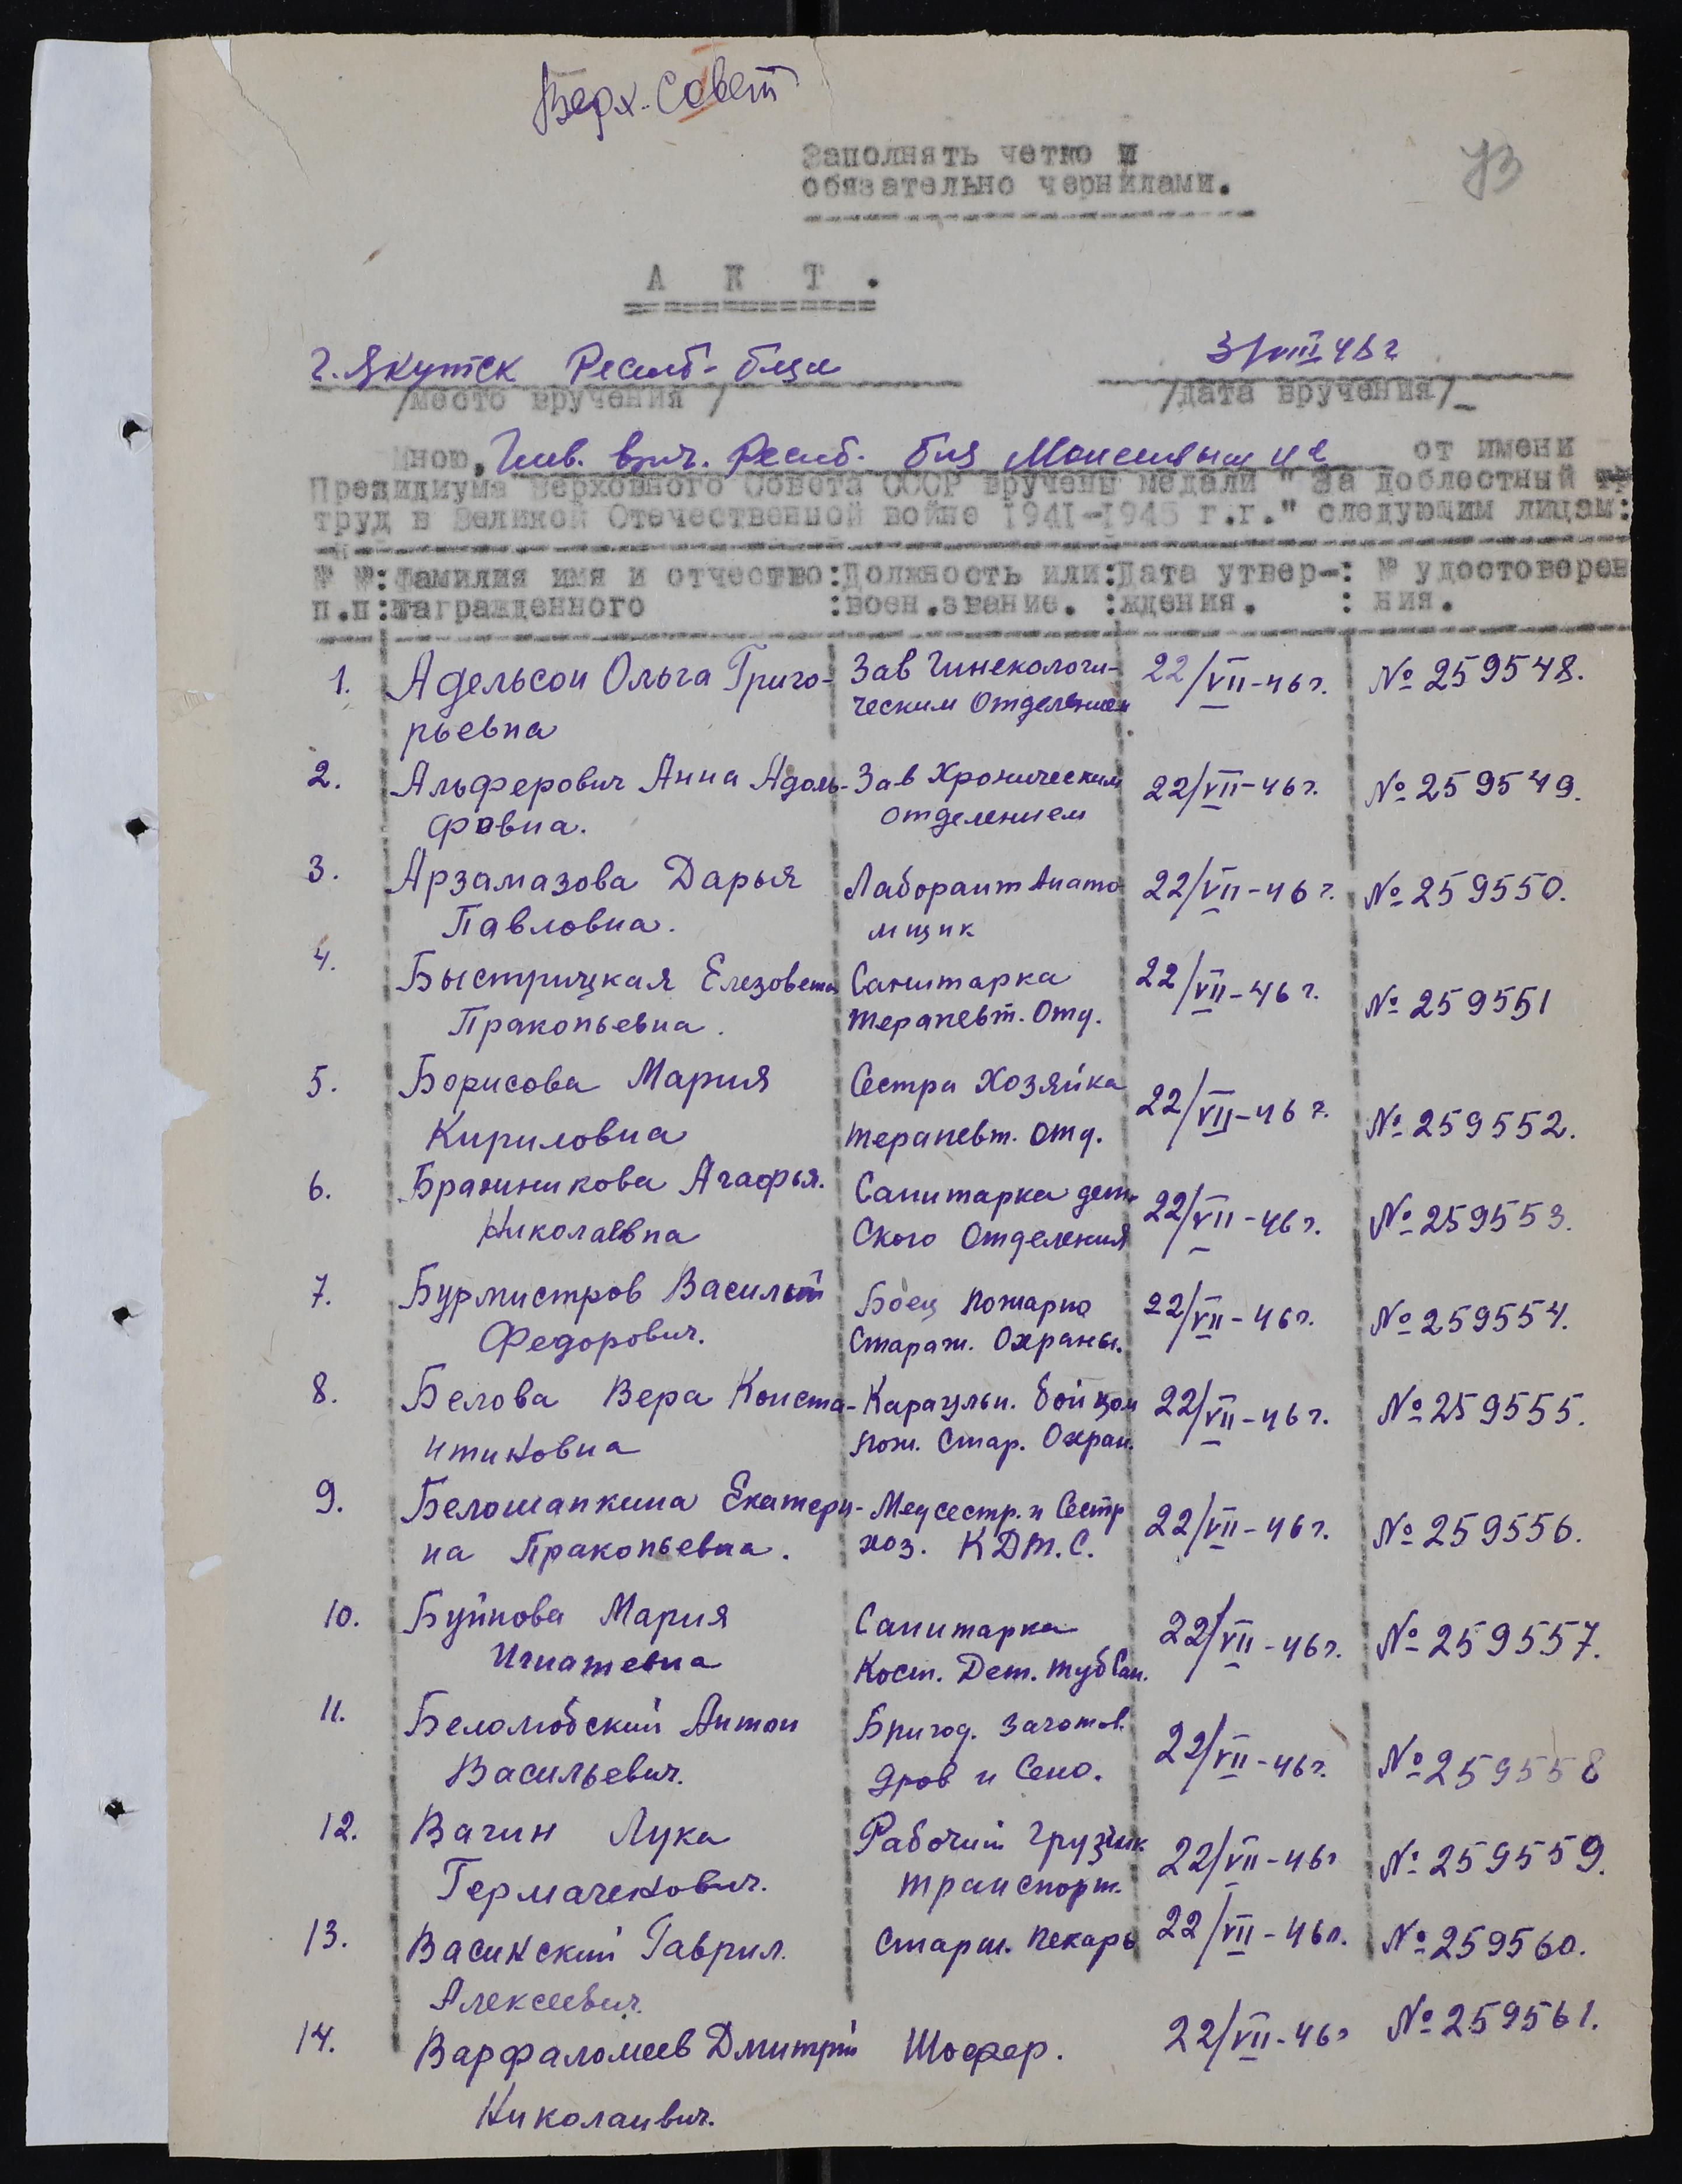 Верх. Совет
Заполнять четко и
обязательно чернилами.
73
А К Т .
г. Якутск Респб-бца
3/VIII 46 г
/место вручения/
/дата вручения/
Мною, Респб. от имени
Президиума Верховного Совета СССР вручены медали "За доблестный тр
труд в Великой Отечественной войне 1941-1945 г.г." следующим лицам:
№ №:Фамилия имя и отчество:Должность или:Дата утвер-: № удостоверен
п.п:награжденного :воен.звание. :ждения. : ния.
1. Адельсон Ольга Григо- Зав Гинекологи- 22/VII-46 г. № 259548.
рьевна ческим Отделением
2. Альферович Анна Адоль- Зав Хроническим 22/VII-46 г. № 259549.
фовна. отделением
3. Арзамазова Дарья Лаборант Анато 22/VII-46 г. № 259550.
Павловна. мщик
4. Быстрицкая Елезовета Санитарка 22/VII-46 г. № 259551
Пракопьевна. терапевт. Отд.
5. Борисова Мария Сестра Хозяйка 22/VII-46 г. № 259552.
Кириловна терапевт. отд.
6. Бранникова Агафья. Санитарка дет- 22/VII-46 г. № 259553.
Николаевна Ского Отделения
7. Бурмистров Василий Боец пожарно 22/VII-46 г. № 259554.
Федорович. Стараж. Охраны.
8. Белова Вера Конста- Караульн. бойцом 22/VII-46 г. № 259555.
нтиновна пож. Стар. Охран.
9. Белошапкина Екатери- Медсестр. и Сестр 22/VII-46 г. № 259556.
на Пракопьевна. хоз. К.Д.Т.С.
10. Буйнова Мария Санитарка 22/VII-46 г. № 259557.
Игнатевна Кост. Дет. туб Сан.
11. Беломобский Антон Бригад. Заготов. 22/VII-46 г. № 259558
Васильевич. дров и Сено.
12. Вагин Лука Рабочий грузчик 22/VII-46 г № 259559.
Гермагенович. транспорт.
13. Васинский Гаврил. Старш. пекарь 22/VII-46 г. № 259560.
Алексеевич.
14. Варфаломеев Дмитрий Шофер. 22/VII-46 г № 259561.
Николаивич.